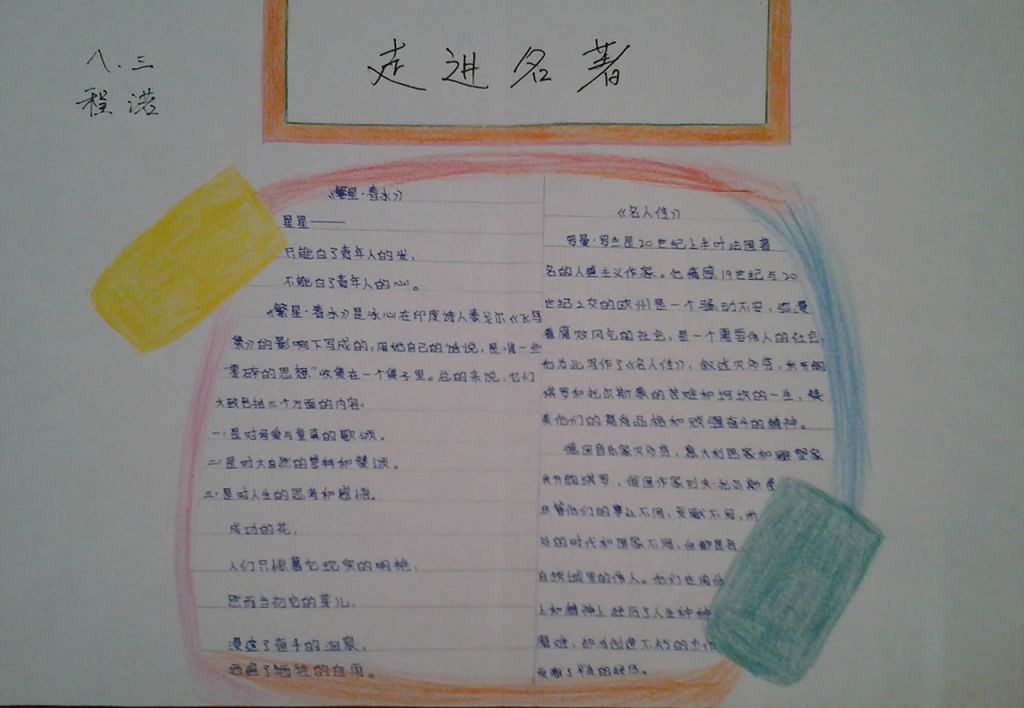 八.三
程诺
走进名著
《繁星·春水》
星星——
只能白了青年人的发，
不能白了青年人的心。
《繁星·春水》是冰心在印度诗人泰戈尔《飞鸟
集》的影响下写成的，用她自己的话说，是将一些
“零碎的思想”收集在一个集子里。总的来说，它们
大致包括三个方面的内容：
一·是对母爱与童真的歌颂。
二·是对大自然的崇拜和赞颂。
三·是对人生的思考和感悟。
成功的花，
人们只惊慕她现实的明艳，
然而当初她的芽儿，
浸透了奋斗的泪泉，
洒遍了牺牲的血雨。
《名人传》
罗曼·罗兰是20世纪上半叶法国著
名的人道主义作家。他痛感19世纪与20
世纪之交的欧州是一个骚动不安，弥漫
着腐败风气的社会，是一个需要伟人的社会，
他为此写作了《名人传》，叙述贝多芬，米开朗
琪罗和托尔斯泰的苦难和坎坷的一生，赞
美他们的高尚品格和顽强奋斗的精神。
德国音乐家贝多芬，意大利画家和雕塑家
米开朗琪罗，俄国作家列夫·托尔斯泰
尽管他们的事业不同，贡献不同，所
处的时代和国家不同，但都是各
自领域里的伟人。他们在肉体
上和精神上经历了人生种种
磨难，却为创造不朽的杰作
贡献了毕生的经历。